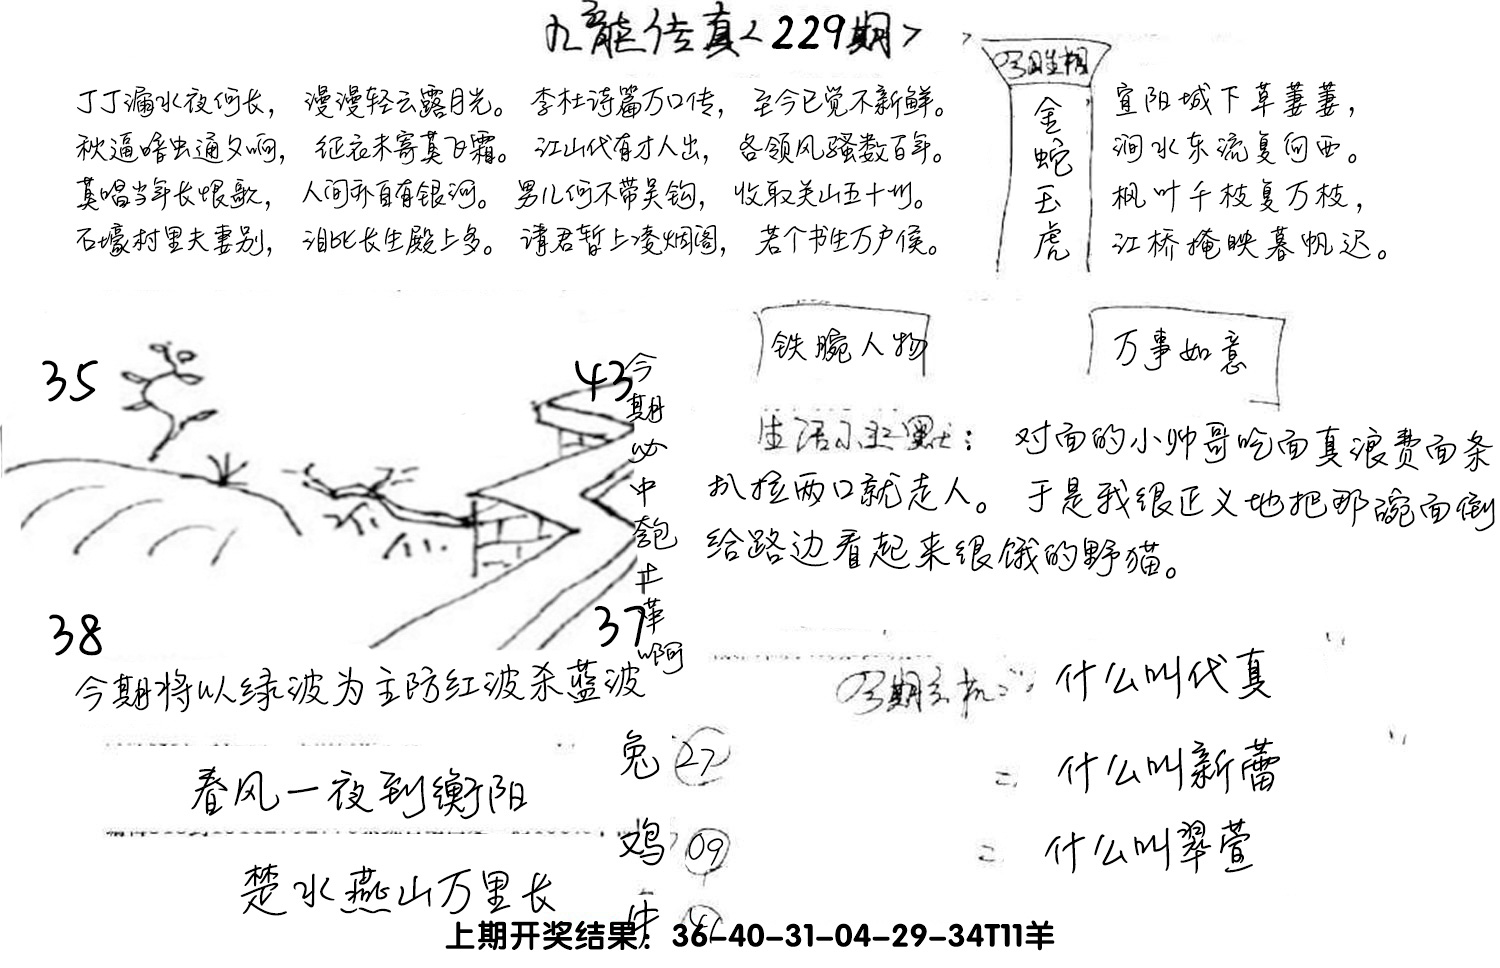 九龙传真<229期>
丁丁漏水夜何长， 漫漫轻云露月光。 李杜诗篇万口传， 至今已觉不新鲜。
秋逼暗虫通夕响， 征衣未寄莫飞霜。 江山代有才人出， 各领风骚数百年。
莫唱当年长恨歌， 人间亦自有银河。 男儿何不带吴钩， 收取关山五十州。
石壕村里夫妻别， 泪比长生殿上多。 请君暂上凌烟阁， 若个书生万户侯。
金蛇玉虎
宜阳城下草萋萋，
涧水东流复向西。
枫叶千枝复万枝，
江桥掩映暮帆迟。
铁腕人物
万事如意
35
43
38
37
今期必中
今期将以绿波为主防红波杀蓝波
生活小幽默： 对面的小帅哥吃面真浪费面条
扒拉两口就走人。 于是我很正义地把那碗面倒
给路边看起来很饿的野猫。
今期玄机: 什么叫代真
= 什么叫新蕾
= 什么叫翠萱
春风一夜到衡阳
楚水燕山万里长
兔 27
鸡 09
牛
上期开奖结果：36-40-31-04-29-34T11羊